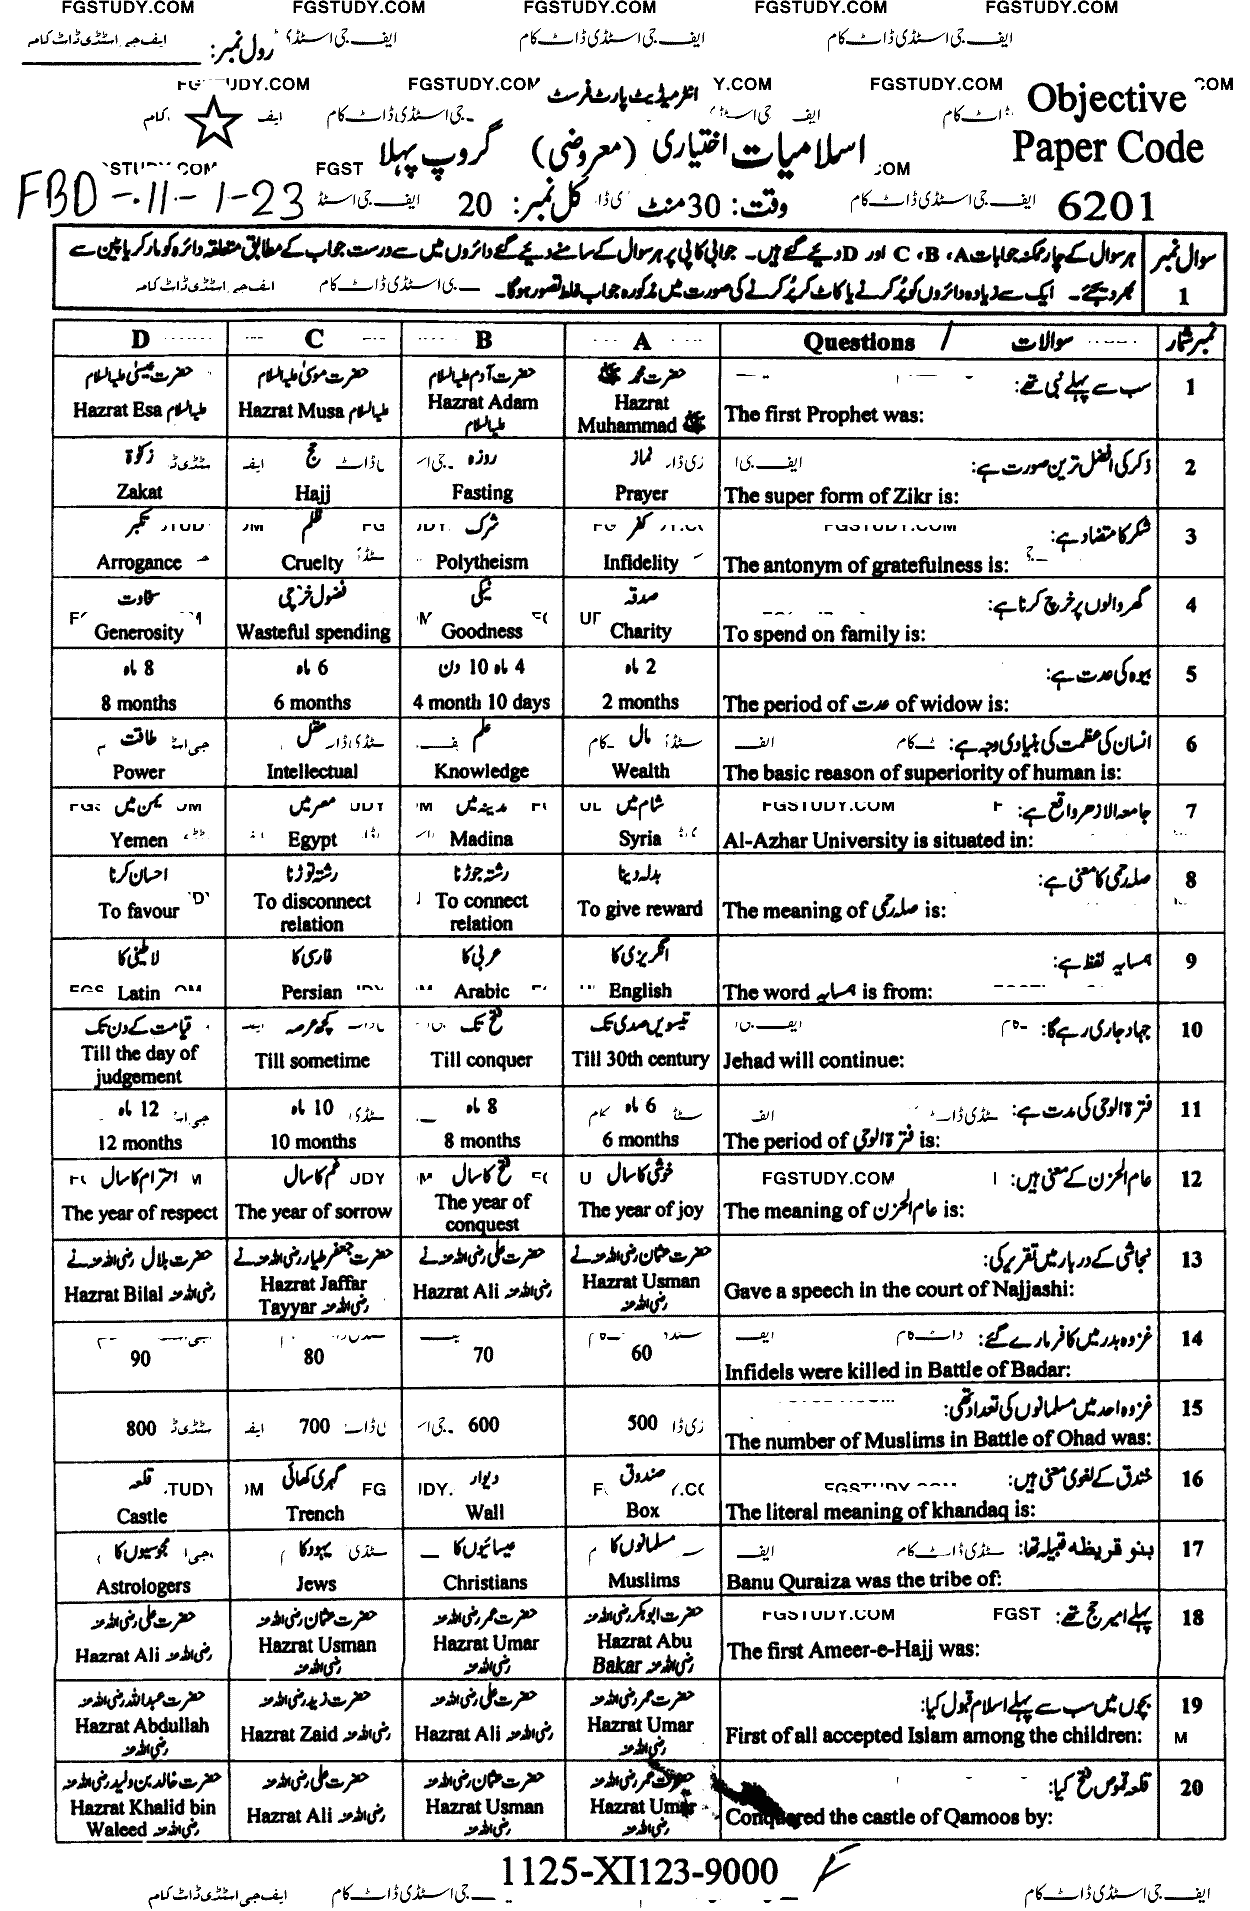 FGSTUDY.COM FGSTUDY.COM FGSTUDY.COM FGSTUDY.COM FGSTUDY.COM
رول نمبر:
انٹرمیڈیٹ پارٹ فرسٹ
Objective
Paper Code
6201
اسلامیات اختیاری (معروضی) گروپ پہلا
وقت: 30 منٹ کل نمبر: 20
FBD-11-1-23
سوال نمبر 1
ہر سوال کے چار ممکنہ جوابات A، B، C اور D دیئے گئے ہیں۔ جوابی کاپی پر ہر سوال کے سامنے دیئے گئے دائروں میں سے درست جواب کے مطابق متعلقہ دائرہ کو مارکر یا پین سے
بھر دیجئے۔ ایک سے زیادہ دائروں کو پُر کرنے یا کاٹ کر پُر کرنے کی صورت میں مذکورہ جواب غلط تصور ہوگا۔
نمبر شمار سوالات / Questions A B C D
1 سب سے پہلے نبی تھے: حضرت محمد ﷺ حضرت آدم علیہ السلام حضرت موسیٰ علیہ السلام حضرت عیسیٰ علیہ السلام
The first Prophet was: Hazrat Muhammad ﷺ Hazrat Adam علیہ السلام Hazrat Musa علیہ السلام Hazrat Esa علیہ السلام
2 ذکر کی افضل ترین صورت ہے: نماز روزہ حج زکوٰۃ
The super form of Zikr is: Prayer Fasting Hajj Zakat
3 شکر کا متضاد ہے: کفر شرک ظلم تکبر
The antonym of gratefulness is: Infidelity Polytheism Cruelty Arrogance
4 گھر والوں پر خرچ کرنا ہے: صدقہ نیکی فضول خرچی سخاوت
To spend on family is: Charity Goodness Wasteful spending Generosity
5 بیوہ کی عدت ہے: 2 ماہ 4 ماہ 10 دن 6 ماہ 8 ماہ
The period of عدت of widow is: 2 months 4 month 10 days 6 months 8 months
6 انسان کی عظمت کی بنیادی وجہ ہے: مال علم عقل طاقت
The basic reason of superiority of human is: Wealth Knowledge Intellectual Power
7 جامعہ الازھر واقع ہے: شام میں مدینہ میں مصر میں یمن میں
Al-Azhar University is situated in: Syria Madina Egypt Yemen
8 صلہ رحمی کا معنی ہے: بدلہ دینا رشتہ جوڑنا رشتہ توڑنا احسان کرنا
The meaning of صلہ رحمی is: To give reward To connect relation To disconnect relation To favour
9 ہمسایہ لفظ ہے: انگریزی کا عربی کا فارسی کا لاطینی کا
The word ہمسایہ is from: English Arabic Persian Latin
10 جہاد جاری رہے گا: تیسویں صدی تک فتح تک کچھ عرصہ قیامت کے دن تک
Jehad will continue: Till 30th century Till conquer Till sometime Till the day of judgement
11 فترۃ الوحی کی مدت ہے: 6 ماہ 8 ماہ 10 ماہ 12 ماہ
The period of فترۃ الوحی is: 6 months 8 months 10 months 12 months
12 عام الحزن کے معنی ہیں: خوشی کا سال فتح کا سال غم کا سال احترام کا سال
The meaning of عام الحزن is: The year of joy The year of conquest The year of sorrow The year of respect
13 نجاشی کے دربار میں تقریر کی: حضرت عثمان رضی اللہ عنہ نے حضرت علی رضی اللہ عنہ نے حضرت جعفر طیار رضی اللہ عنہ نے حضرت بلال رضی اللہ عنہ نے
Gave a speech in the court of Najjashi: Hazrat Usman رضی اللہ عنہ Hazrat Ali رضی اللہ عنہ Hazrat Jaffar Tayyar رضی اللہ عنہ Hazrat Bilal رضی اللہ عنہ
14 غزوہ بدر میں کافر مارے گئے:
Infidels were killed in Battle of Badar: 60 70 80 90
15 غزوہ احد میں مسلمانوں کی تعداد تھی:
The number of Muslims in Battle of Ohad was: 500 600 700 800
16 خندق کے لغوی معنی ہیں: صندوق دیوار گہری کھائی قلعہ
The literal meaning of khandaq is: Box Wall Trench Castle
17 بنو قریظہ قبیلہ تھا: مسلمانوں کا عیسائیوں کا یہود کا مجوسیوں کا
Banu Quraiza was the tribe of: Muslims Christians Jews Astrologers
18 پہلے امیر حج تھے: حضرت ابو بکر رضی اللہ عنہ حضرت عمر رضی اللہ عنہ حضرت عثمان رضی اللہ عنہ حضرت علی رضی اللہ عنہ
The first Ameer-e-Hajj was: Hazrat Abu Bakar رضی اللہ عنہ Hazrat Umar رضی اللہ عنہ Hazrat Usman رضی اللہ عنہ Hazrat Ali رضی اللہ عنہ
19 بچوں میں سب سے پہلے اسلام قبول کیا: حضرت عمر رضی اللہ عنہ حضرت علی رضی اللہ عنہ حضرت زید رضی اللہ عنہ حضرت عبداللہ رضی اللہ عنہ
First of all accepted Islam among the children: Hazrat Umar رضی اللہ عنہ Hazrat Ali رضی اللہ عنہ Hazrat Zaid رضی اللہ عنہ Hazrat Abdullah رضی اللہ عنہ
20 قلعہ قموص فتح کیا: حضرت عمر رضی اللہ عنہ حضرت عثمان رضی اللہ عنہ حضرت علی رضی اللہ عنہ حضرت خالد بن ولید رضی اللہ عنہ
Conquered the castle of Qamoos by: Hazrat Umar رضی اللہ عنہ Hazrat Usman رضی اللہ عنہ Hazrat Ali رضی اللہ عنہ Hazrat Khalid bin Waleed رضی اللہ عنہ
1125-XI123-9000